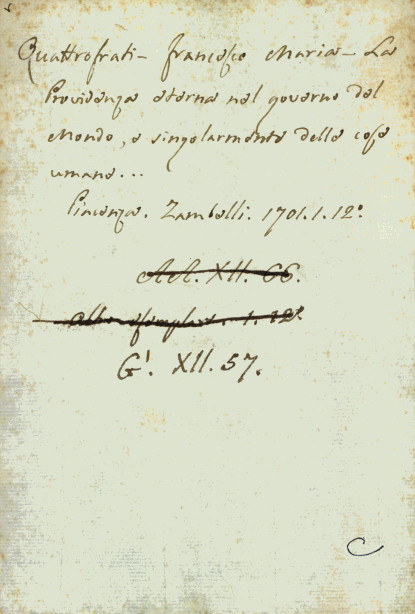 Quattrofrati - Francesco Maria - La
Providenza eterna nel governo del
Mondo, e singolarmente delle cose
umane...
Piacenza. Zambelli. 1701. 1. 12°.
AA. XII. 66.
altro esemplare. 1. 12°.
G¹. XII. 57.
C